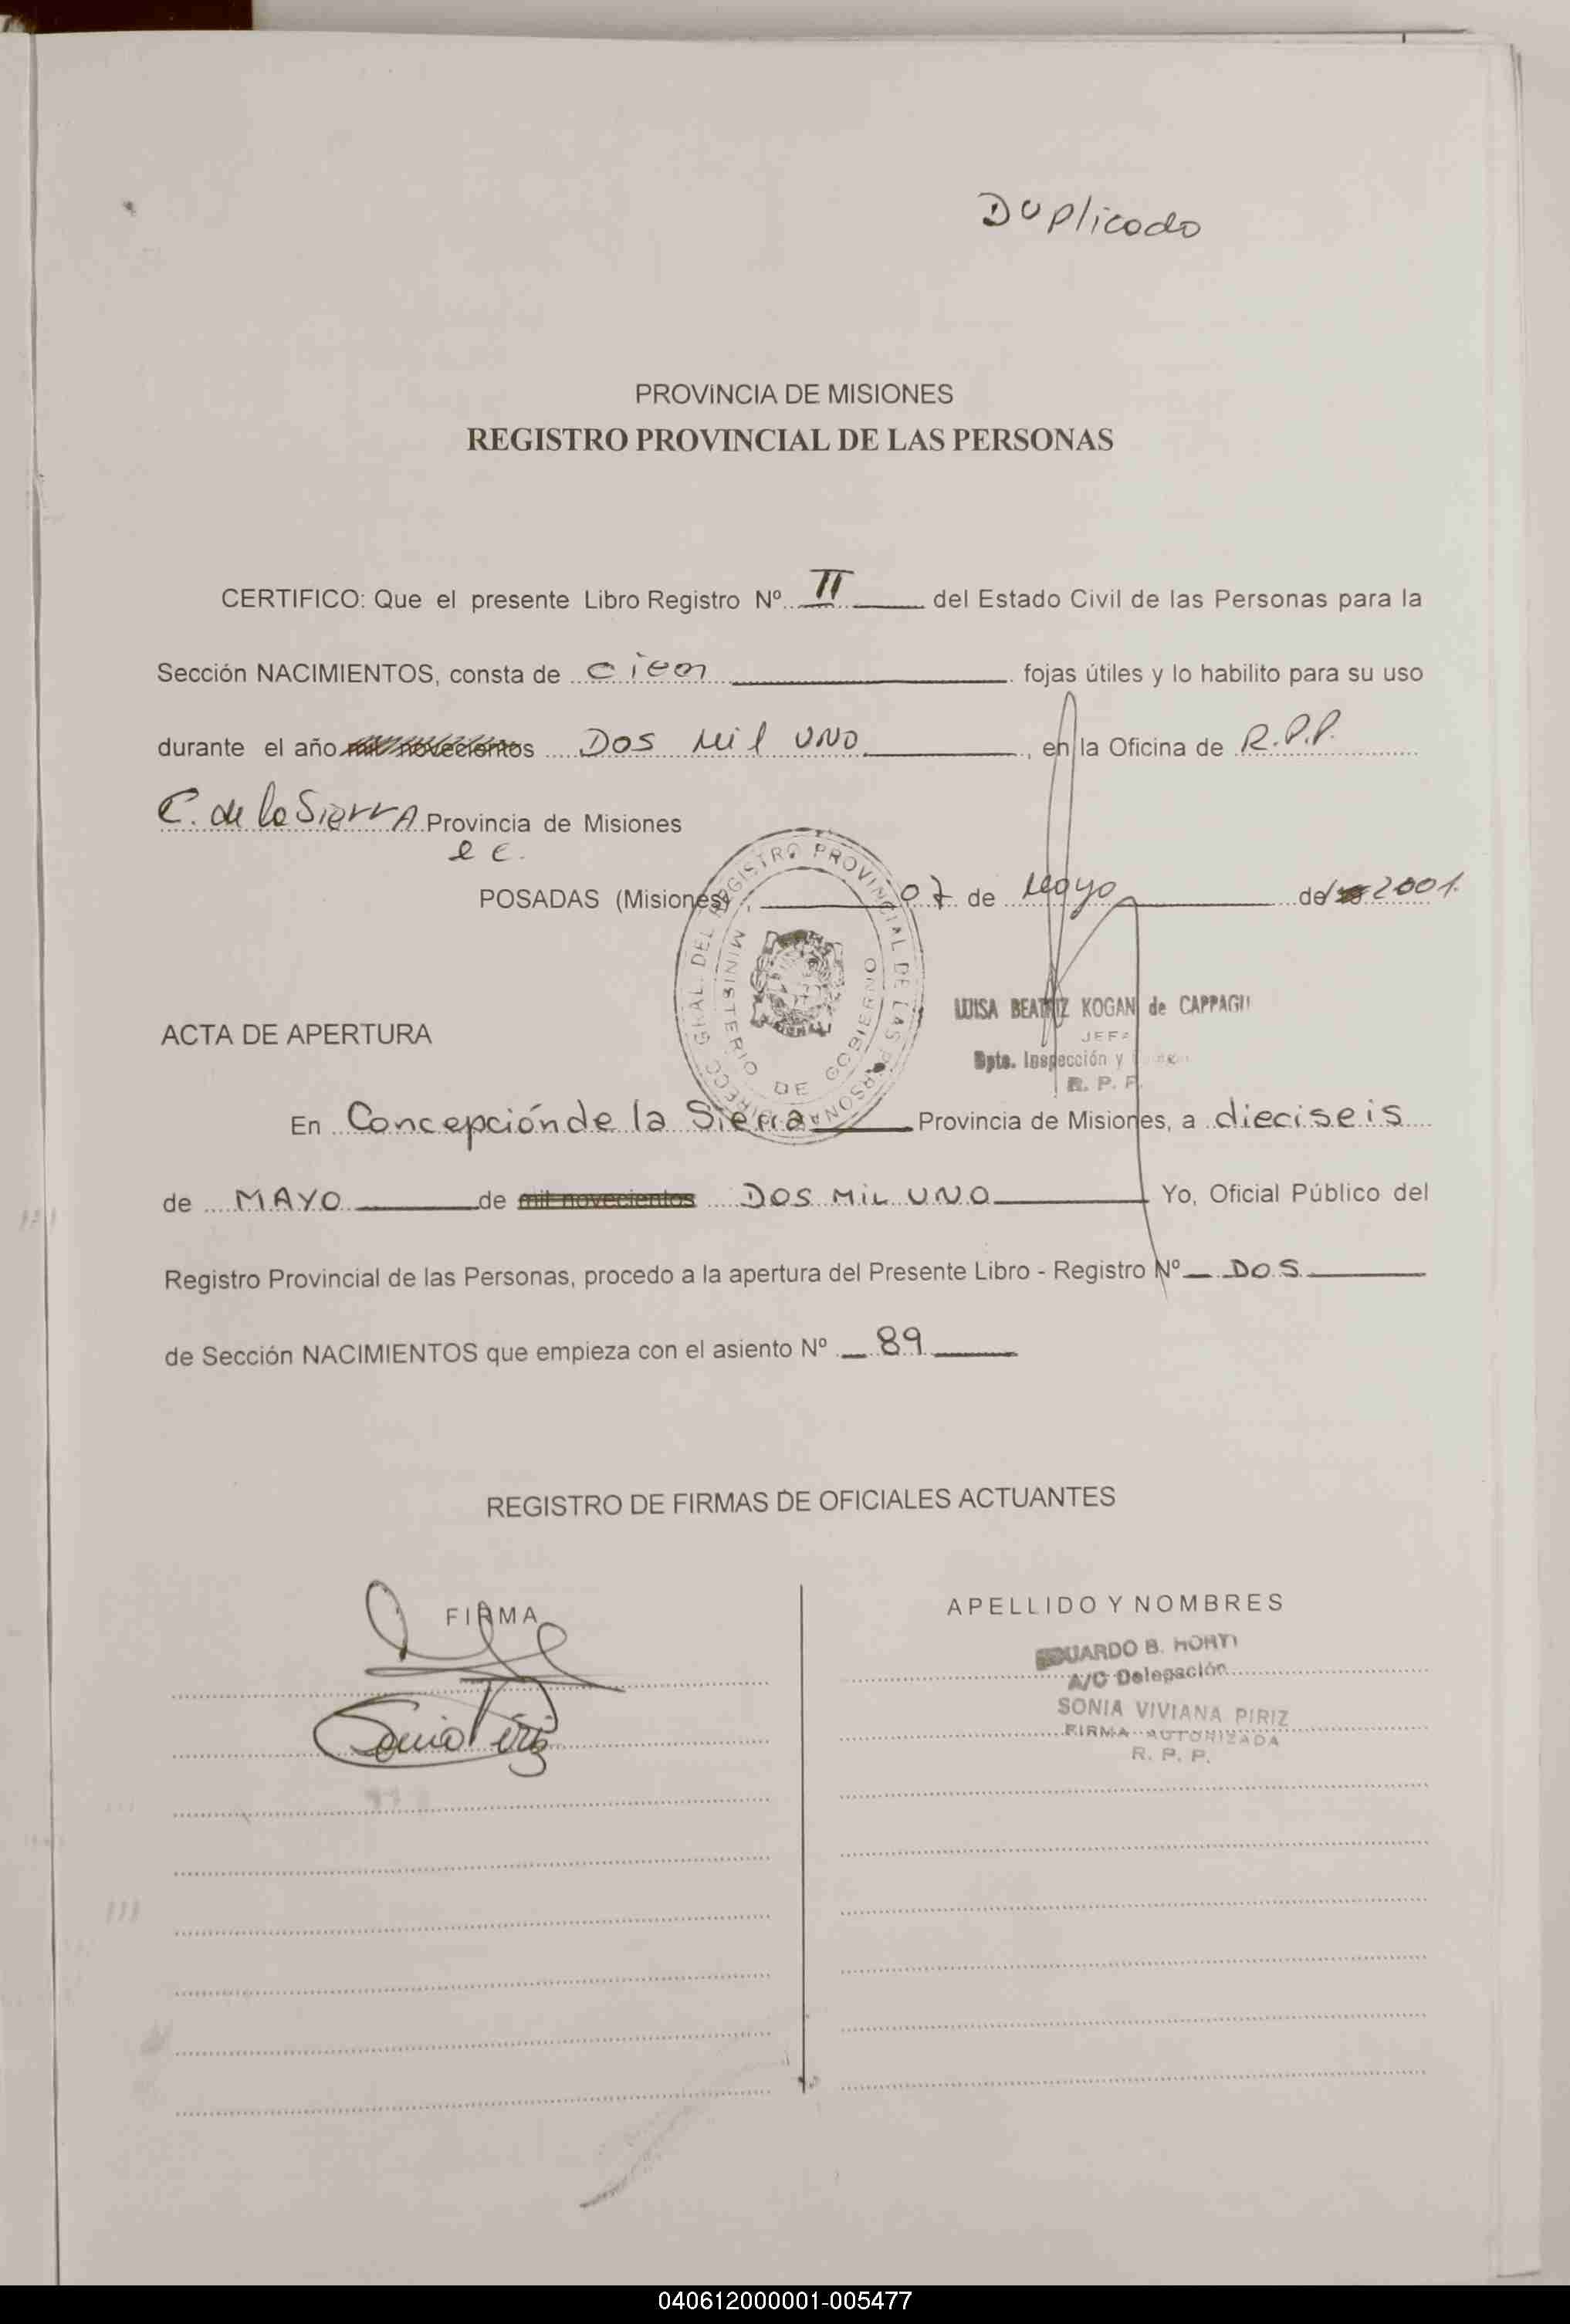 Duplicado
PROVINCIA DE MISIONES
REGISTRO PROVINCIAL DE LAS PERSONAS
CERTIFICO: Que el presente Libro Registro Nº II del Estado Civil de las Personas para la
Sección NACIMIENTOS, consta de cien fojas útiles y lo habilito para su uso
durante el año mil novecientos Dos Mil UNO, en la Oficina de R.P.P.
C. de la SierrA Provincia de Misiones
POSADAS (Misiones) 07 de Mayo de 2001.
DIRECC. GRAL. DEL REGISTRO PROVINCIAL DE LAS PERSONAS
MINISTERIO DE GOBIERNO
LUISA BEATRIZ KOGAN de
JEFA
Dpto. Inspección y
R. P. P.
ACTA DE APERTURA
En Concepción de la Sierra Provincia de Misiones, a dieciseis
de MAYO de mil novecientos DOS MIL UNO Yo, Oficial Público del
Registro Provincial de las Personas, procedo a la apertura del Presente Libro - Registro Nº DOS
de Sección NACIMIENTOS que empieza con el asiento Nº 89
REGISTRO DE FIRMAS DE OFICIALES ACTUANTES
FIRMA
Sonia Piriz
APELLIDO Y NOMBRES
EDUARDO B.
A/C Delegación
SONIA VIVIANA PIRIZ
FIRMA AUTORIZADA
R. P. P.
040612000001-005477